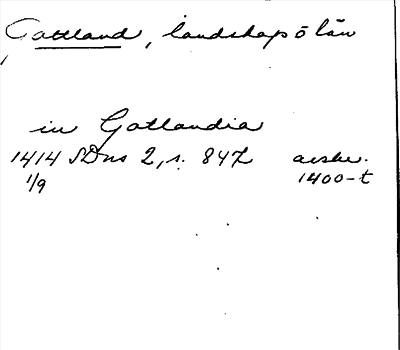 Gotland, landskap o län
in Gotlandia
1414 SDns 2, s. 847 avskr.
1/9 1400-t